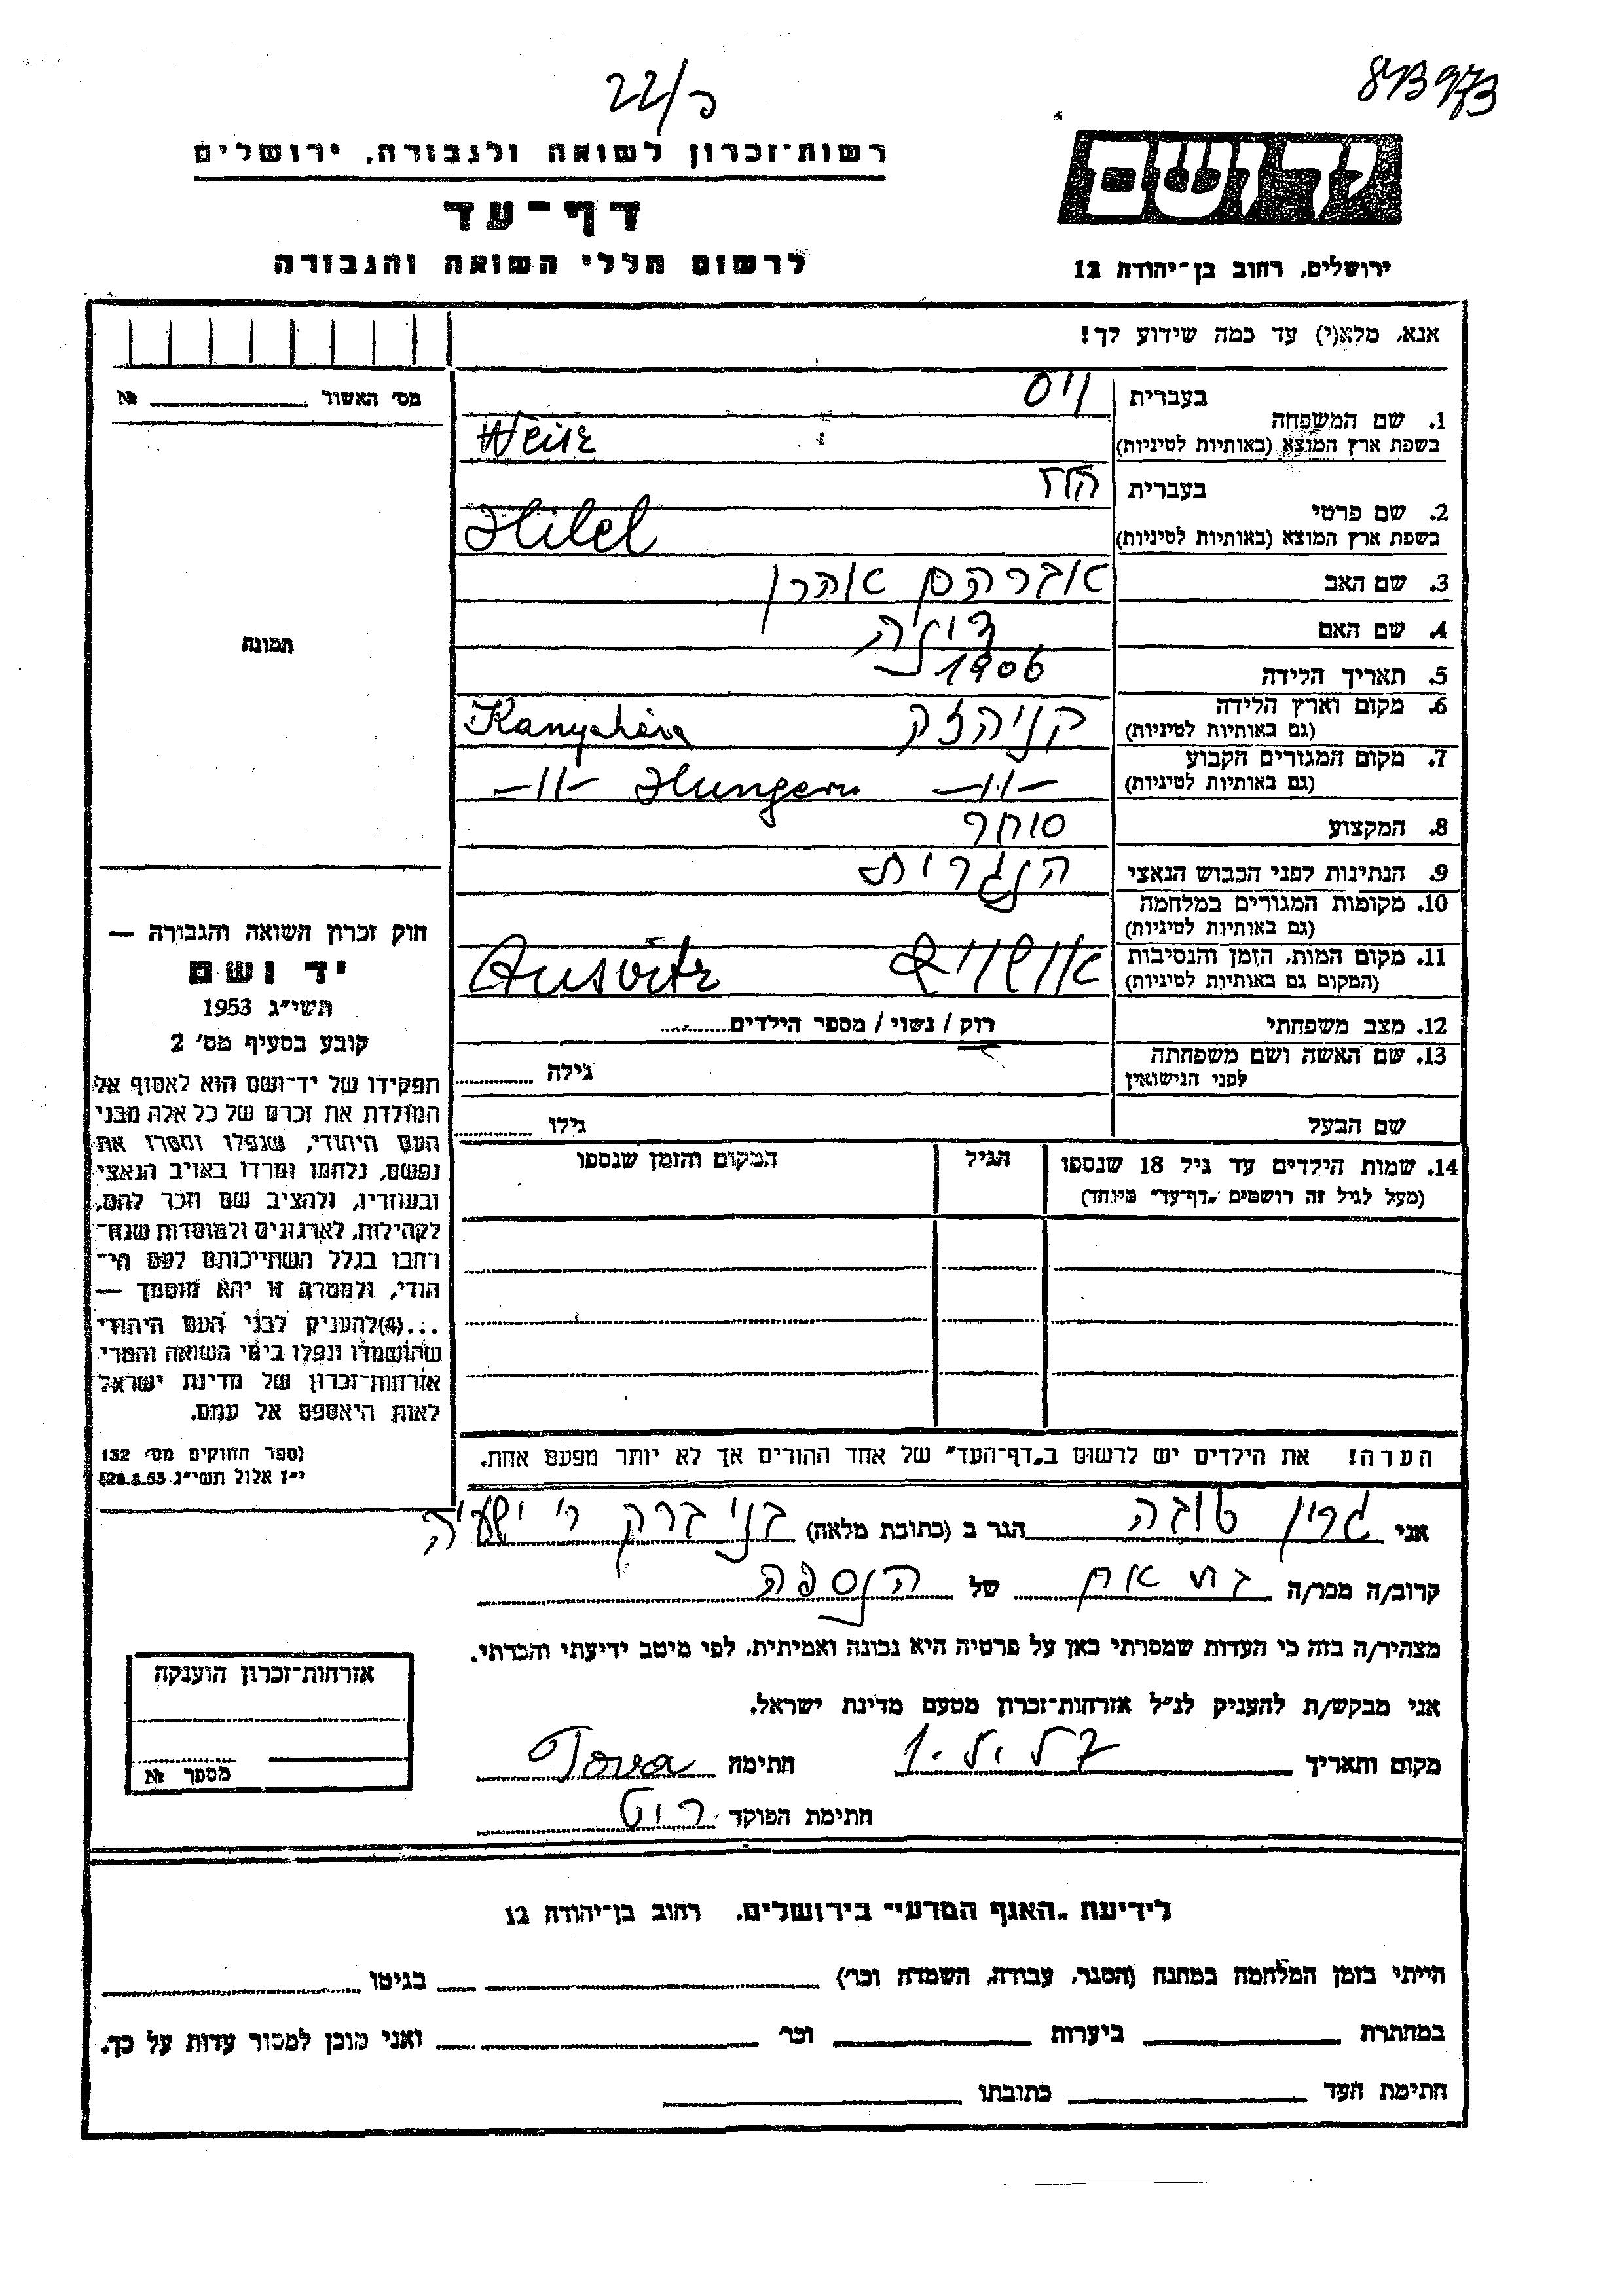 22/כ
873973
רשות־זכרון לשואה ולגבורה, ירושלים
יד ושם
דף־עד
לרשום חללי השואה והגבורה
ירושלים, רחוב בן־יהודה 12
אנא, מלא(י) עד כמה שידוע לך!
מס׳ האשור № 
1. שם המשפחה
בעברית וייס
בשפת ארץ המוצא (באותיות לטיניות) Weisz
2. שם פרטי
בעברית
בשפת ארץ המוצא (באותיות לטיניות) Hilel
3. שם האב אברהם אהרן
4. שם האם
5. תאריך הלידה 1906
6. מקום וארץ הלידה
(גם באותיות לטיניות)
7. מקום המגורים הקבוע -11-
(גם באותיות לטיניות) Hungern -11-
8. המקצוע סוחר
9. הנתינות לפני הכבוש הנאצי הנגרית
10. מקומות המגורים במלחמה
(גם באותיות לטיניות)
11. מקום המות, הזמן והנסיבות אושויץ
(המקום גם באותיות לטיניות) Ausvitz
12. מצב משפחתי רוק / נשוי / מספר הילדים
13. שם האשה ושם משפחתה
לפני הנישואין גילה
שם הבעל גילו
14. שמות הילדים עד גיל 18 שנספו הגיל המקום והזמן שנספו
(מעל לגיל זה רושמים „דף־עד״ מיוחד)
תמונה
חוק זכרון השואה והגבורה —
יד ושם
תשי״ג 1953
קובע בסעיף מס׳ 2
תפקידו של יד־ושם הוא לאסוף אל
המולדת את זכרם של כל אלה מבני
העם היהודי, שנפלו ומסרו את
נפשם, נלחמו ומרדו באויב הנאצי
ובעוזריו, ולהציב שם וזכר להם,
לקהילות, לארגונים ולמוסדות שנח־
רבו בגלל השתייכותם לעם הי־
הודי, ולמטרה זו יהא מוסמך —
...(4)להעניק לבני העם היהודי
שהושמדו ונפלו בימי השואה והמרי
אזרחות־זכרון של מדינת ישראל
לאות היאספם אל עמם.
(ספר החוקים מס׳ 132
י״ז אלול תשי״ג 28.8.53)
הערה! את הילדים יש לרשום ב„דף־העד״ של אחד ההורים אך לא יותר מפעם אחת.
אני גרין טובה הגר ב (כתובת מלאה) בני ברק ר׳ ישעיה
קרוב/ה מכר/ה בת אח של הנספה
מצהיר/ה בזה כי העדות שמסרתי כאן על פרטיה היא נכונה ואמיתית, לפי מיטב ידיעתי והכרתי.
אני מבקש/ת להעניק לנ״ל אזרחות־זכרון מטעם מדינת ישראל.
מקום ותאריך חתימה Tova
חתימת הפוקד
אזרחות־זכרון הוענקה
מספר №
לידיעת „האגף המדעי״ בירושלים, רחוב בן־יהודה 12
הייתי בזמן המלחמה במחנה (הסגר, עבודה, השמדה וכו׳) בגיטו
במחתרת ביערות וכו׳ ואני מוכן למסור עדות על כך.
חתימת העד כתובתו